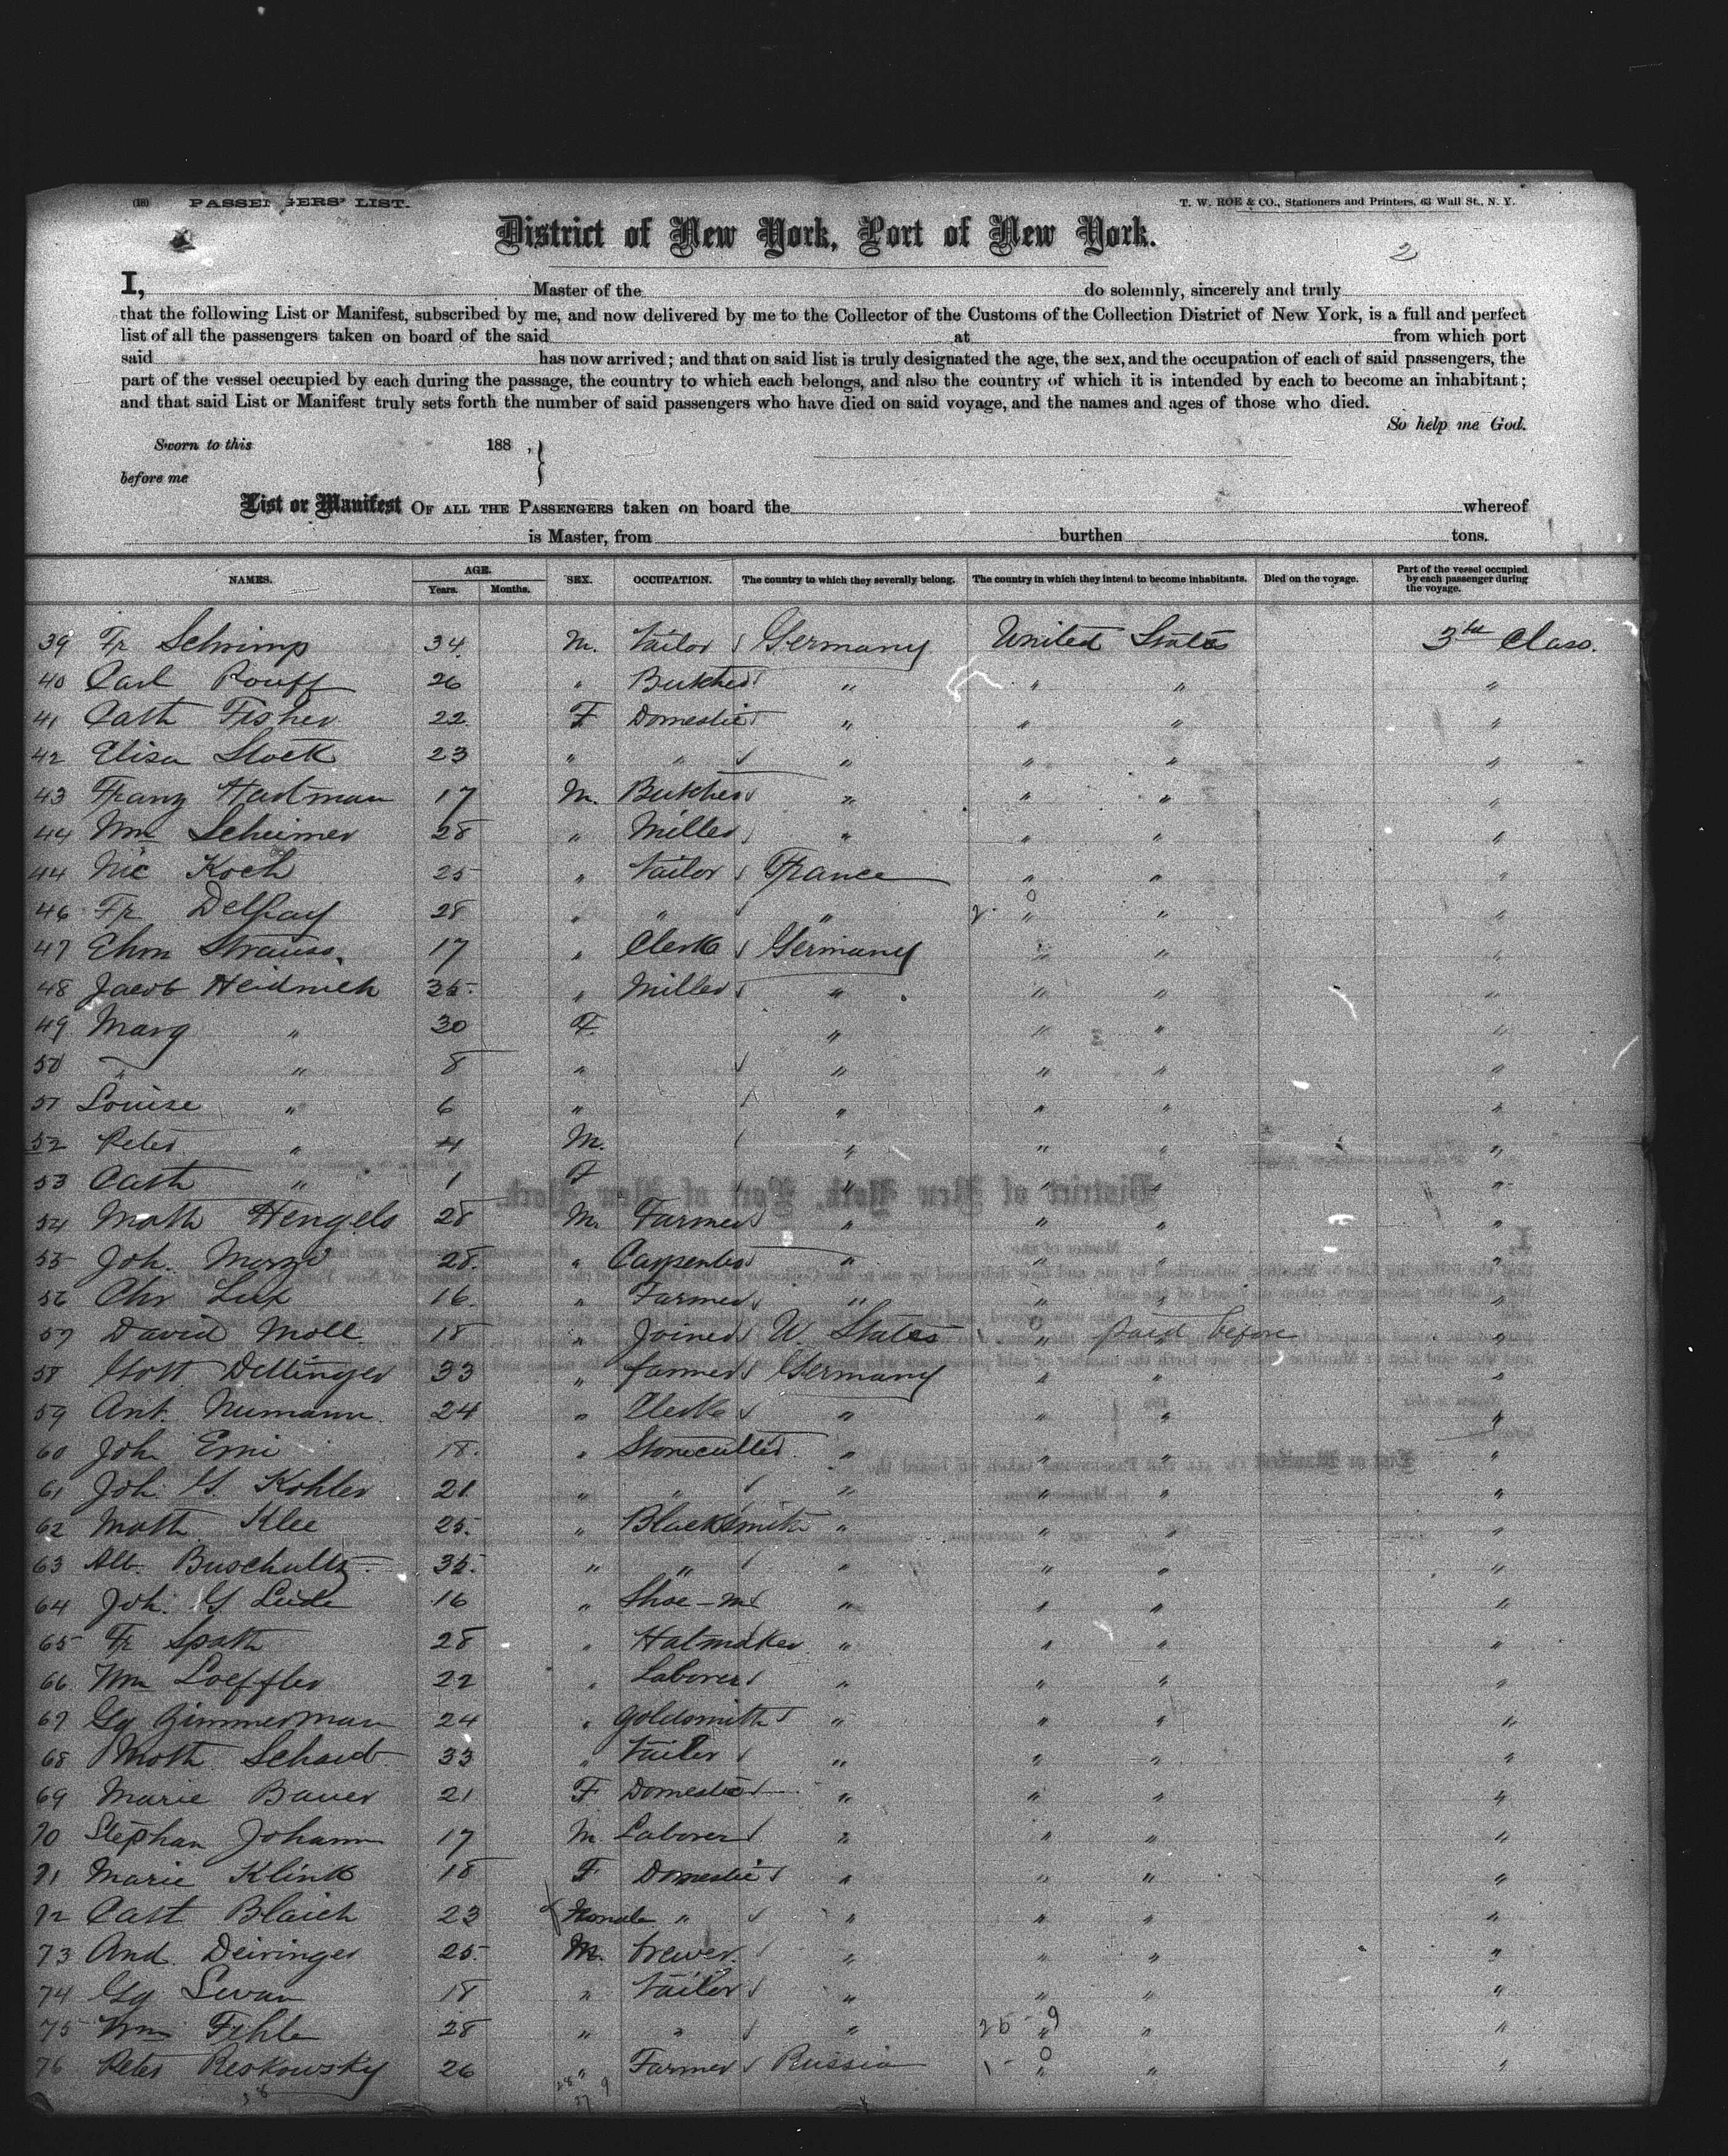 (18) PASSENGERS' LIST. T. W. ROE & CO., Stationers and Printers, 63 Wall St., N. Y.
District of New York, Port of New York.
2
I, Master of the do solemnly, sincerely and truly
that the following List or Manifest, subscribed by me, and now delivered by me to the Collector of the Customs of the Collection District of New York, is a full and perfect
list of all the passengers taken on board of the said at from which port
said has now arrived; and that on said list is truly designated the age, the sex, and the occupation of each of said passengers, the
part of the vessel occupied by each during the passage, the country to which each belongs, and also the country of which it is intended by each to become an inhabitant;
and that said List or Manifest truly sets forth the number of said passengers who have died on said voyage, and the names and ages of those who died.
So help me God.
Sworn to this 188 ,
before me
List or Manifest OF ALL THE PASSENGERS taken on board the whereof
is Master, from burthen tons.
NAMES. AGE. Years. Months. SEX. OCCUPATION. The country to which they severally belong. The country in which they intend to become inhabitants. Died on the voyage. Part of the vessel occupied by each passenger during the voyage.
39 Fr Schrimp 34 M. Tailor Germany United States 3rd Class.
40 Carl Rouff 26 " Butcher " " " "
41 Cath Fisher 22 F Domestic " " " "
42 Elisa Stock 23 " " " " " "
43 Franz Hartman 17 M. Butcher " " " "
44 Wm Scheimer 28 " Miller " " " "
44 Nic Koch 25 " Tailor France " " "
46 Fr Delkay 28 " " " " " "
47 Ehm Strauss 17 " Clerk Germany " " "
48 Jacob Heidrich 35 " Miller " " " "
49 Marg " 30 F. " " " "
50 " " 8 " " " " "
51 Louise " 6 " " " " "
52 Peter " 4 M. " " " "
53 Cath " 1 F " " " "
54 Math Hengels 28 M. Farmer " " " "
55 Joh. 28 " Carpenter " " " "
56 Chr Lux 16 " Farmer " " " "
57 David Moll 18 " Joiner U. States " paid before "
58 Gott Dellinger 33 " farmer Germany " " "
59 Ant. Numann 24 " Clerk " " " "
60 Joh Erni 18 " Stonecutter " " " "
61 Joh. G. Kohler 21 " " " " " "
62 Math Klee 25 " Blacksmith " " " "
63 Alb. Buschultz 35 " " " " " "
64 Joh. G 16 " Shoe-m " " " "
65 Fr Spath 28 " Hatmaker " " " "
66 Wm Loeffler 22 " Laborer " " " "
67 Gg Zimmerman 24 " goldsmith " " " "
68 Math Schaub 33 " Tailor " " " "
69 Marie Bauer 21 F Domestic " " " "
70 Stephan Johann 17 M Laborer " " " "
71 Marie Klink 18 F Domestic " " " "
72 Cath Blaich 23 " " " " "
73 And. Deiringer 25 M. brewer " " " "
74 Gg 18 " Tailor " " " "
75 Wm Fehle 28 " " " " " "
76 Peter Reskowsky 26 " Farmer Russia " " "